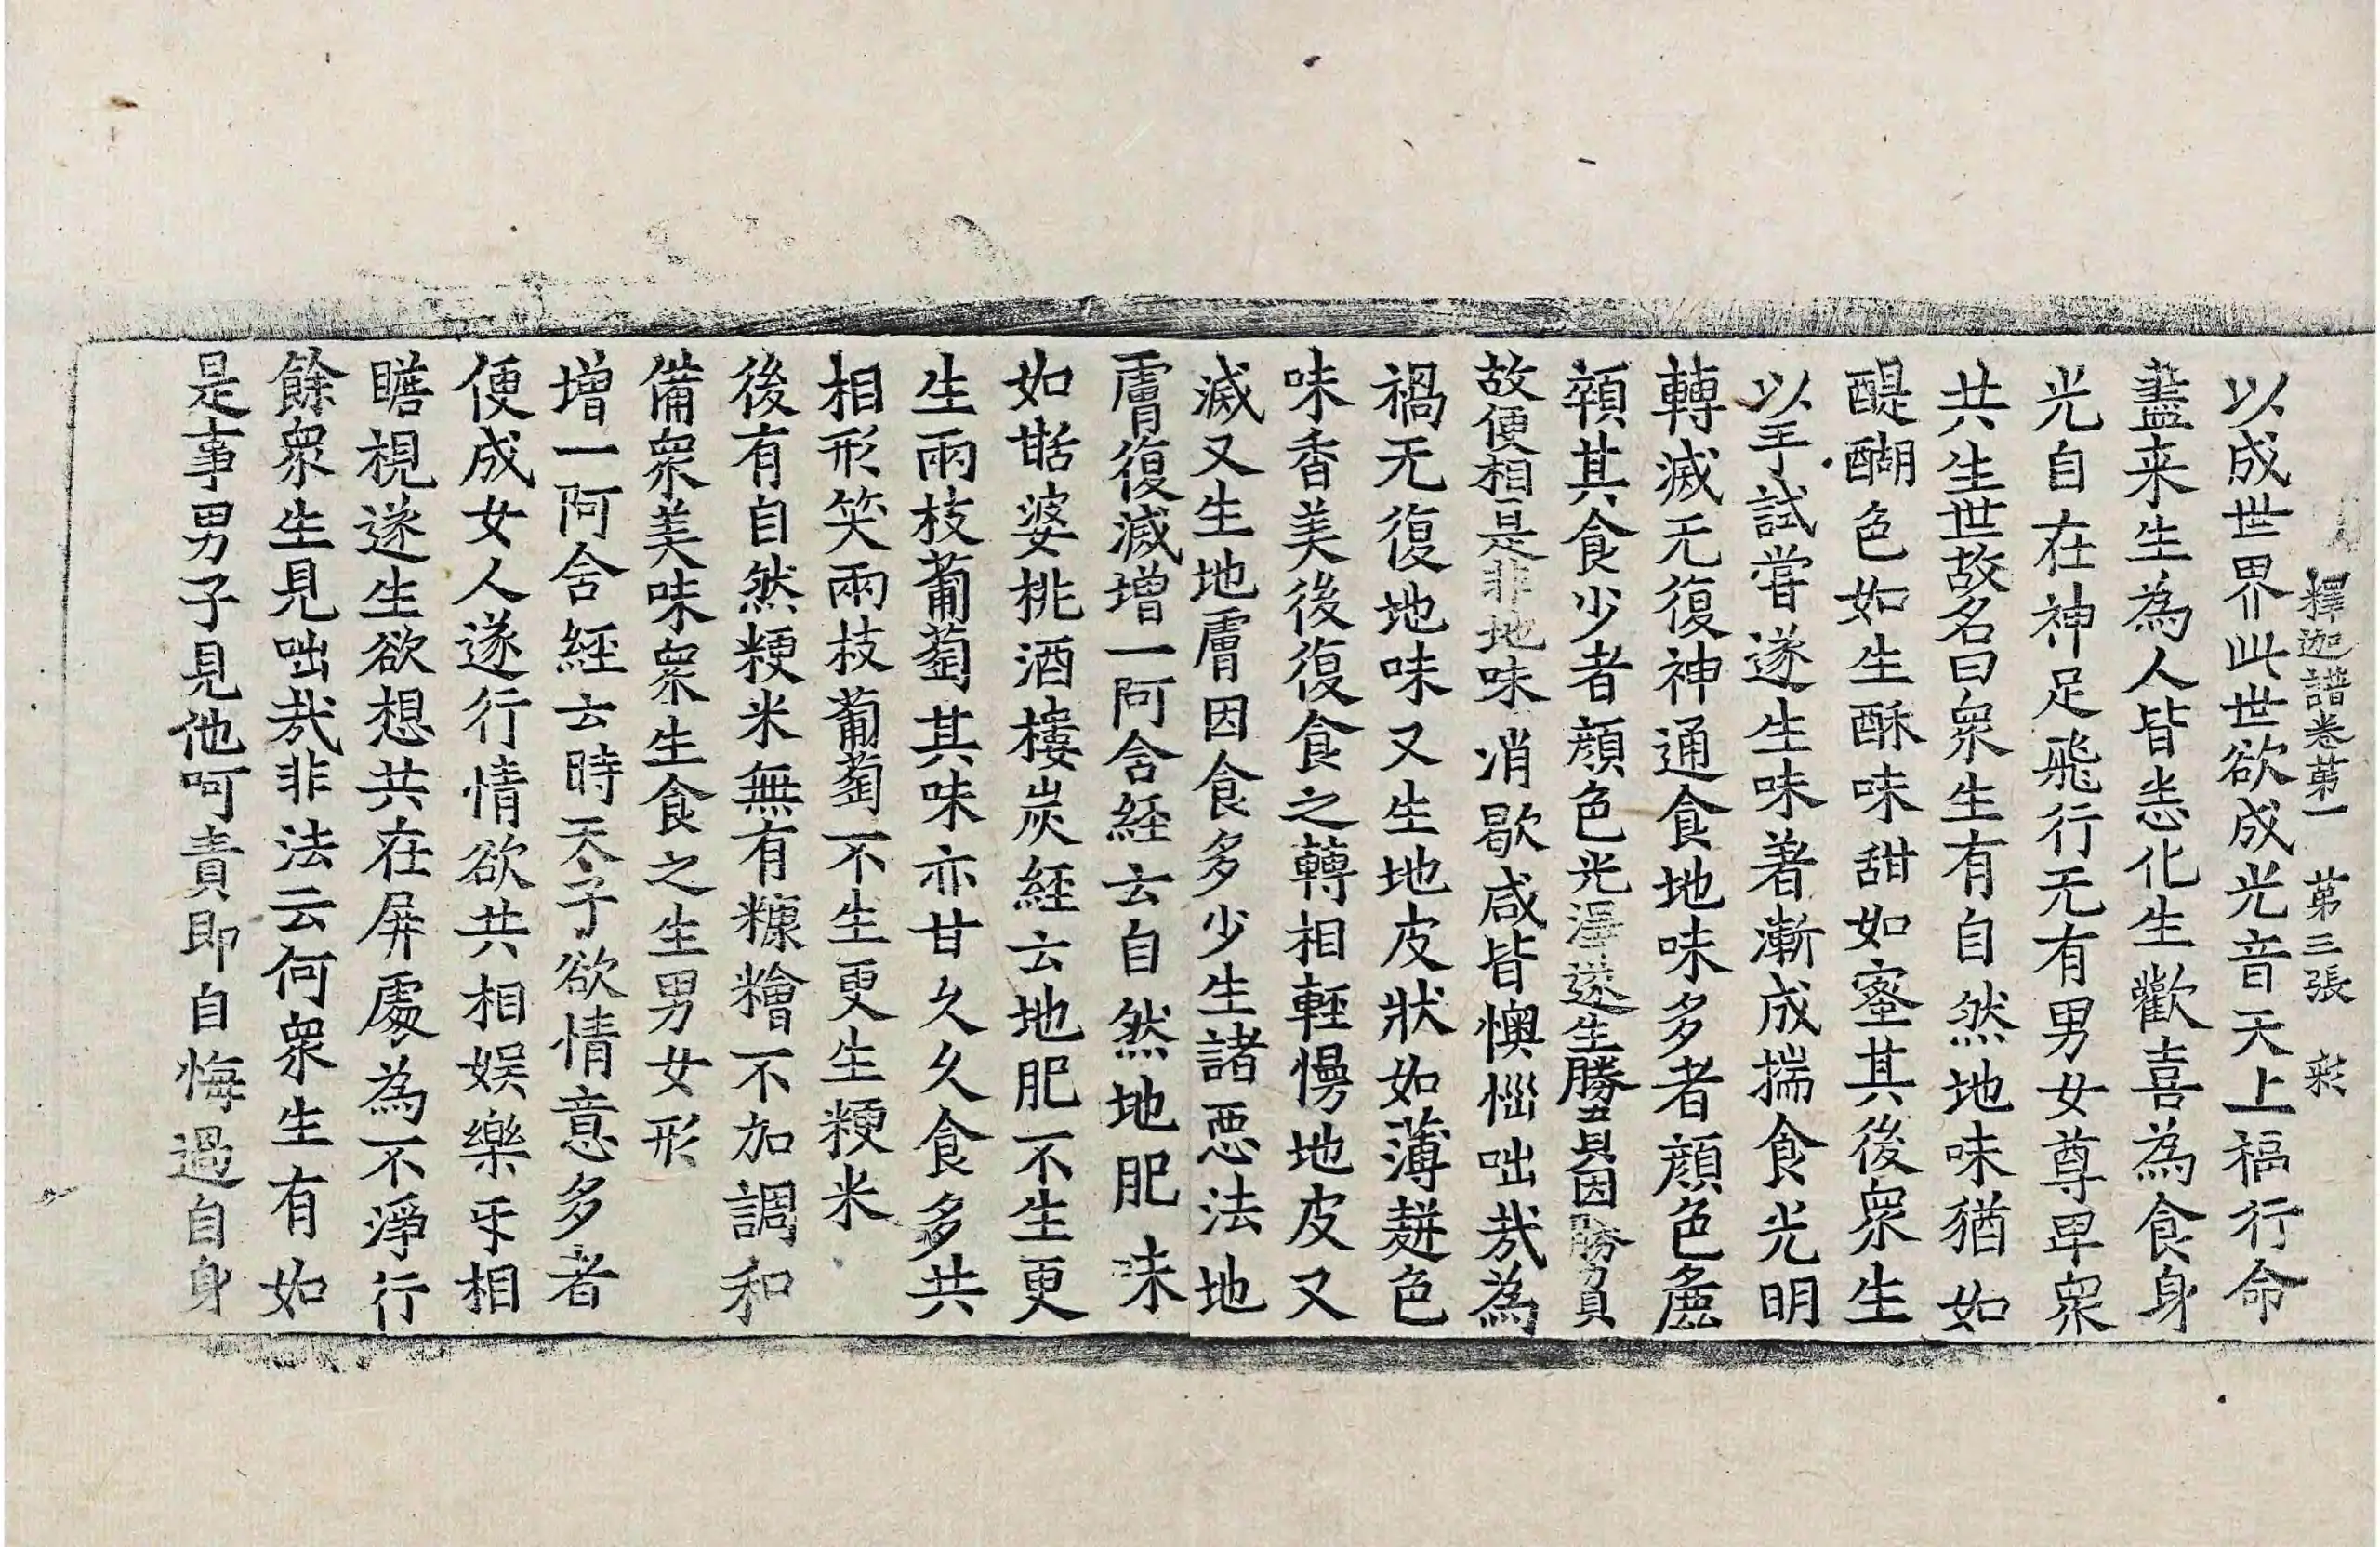 釋迦譜卷第一　第三張　彩
以成世界此世欲成光音天上福行命
盡来生為人皆悉化生歡喜為食身
光自在神足飛行无有男女尊卑衆
共生世故名曰衆生有自然地味猶如
醍醐色如生酥味甜如蜜其後衆生
以手試甞遂生味著漸成揣食光明
轉滅无復神通食地味多者顔色麁
顇其食少者顔色光澤遂生勝負因勝負
故便相是非地味消歇咸皆懊惱咄㢤為
禍无復地味又生地皮狀如薄䴵色
味香美後復食之轉相輕慢地皮又
滅又生地膚因食多少生諸惡法地
膚復滅增一阿含経云自然地肥味
如甛婆桃酒樓炭経云地肥不生更
生兩枝葡萄其味亦甘久久食多共
相形笑兩枝葡萄不生更生粳米
後有自然粳米無有糠糩不加調和
備衆美味衆生食之生男女形
增一阿含経云時天子欲情意多者
便成女人遂行情欲共相娱樂㸦相
瞻視遂生欲想共在屏處為不淨行
餘衆生見咄㢤非法云何衆生有如
是事男子見他呵責即自悔過自身